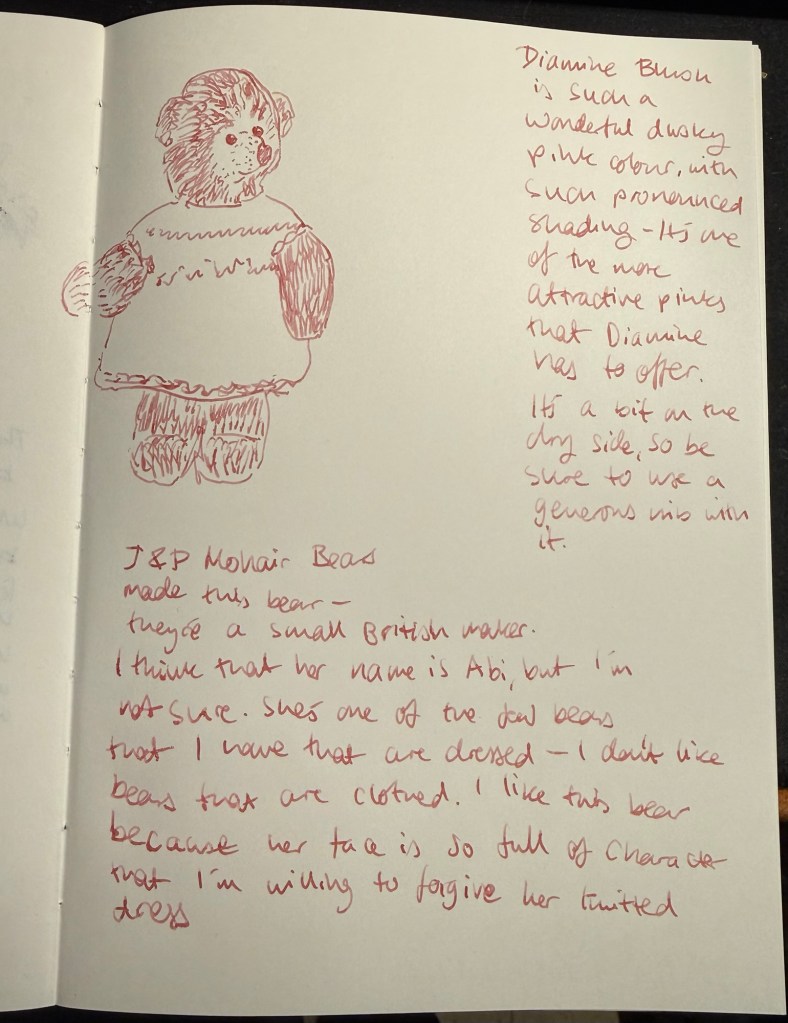 Diamine Blush
is such a
wonderful dusky
pink colour, with
such pronounced
shading - It's one
of the more
attractive pinks
that Diamine
has to offer.
It's a bit on the
dry side, so be
sure to use a
generous nib with
it.
J&P Mohair Bears
made this bear —
they're a small British maker.
I think that her name is Abi, but I'm
not sure. She's one of the few bears
that I have that are dressed — I don't like
bears that are clothed. I like this bear
because her face is so full of character
that I'm willing to forgive her knitted
dress